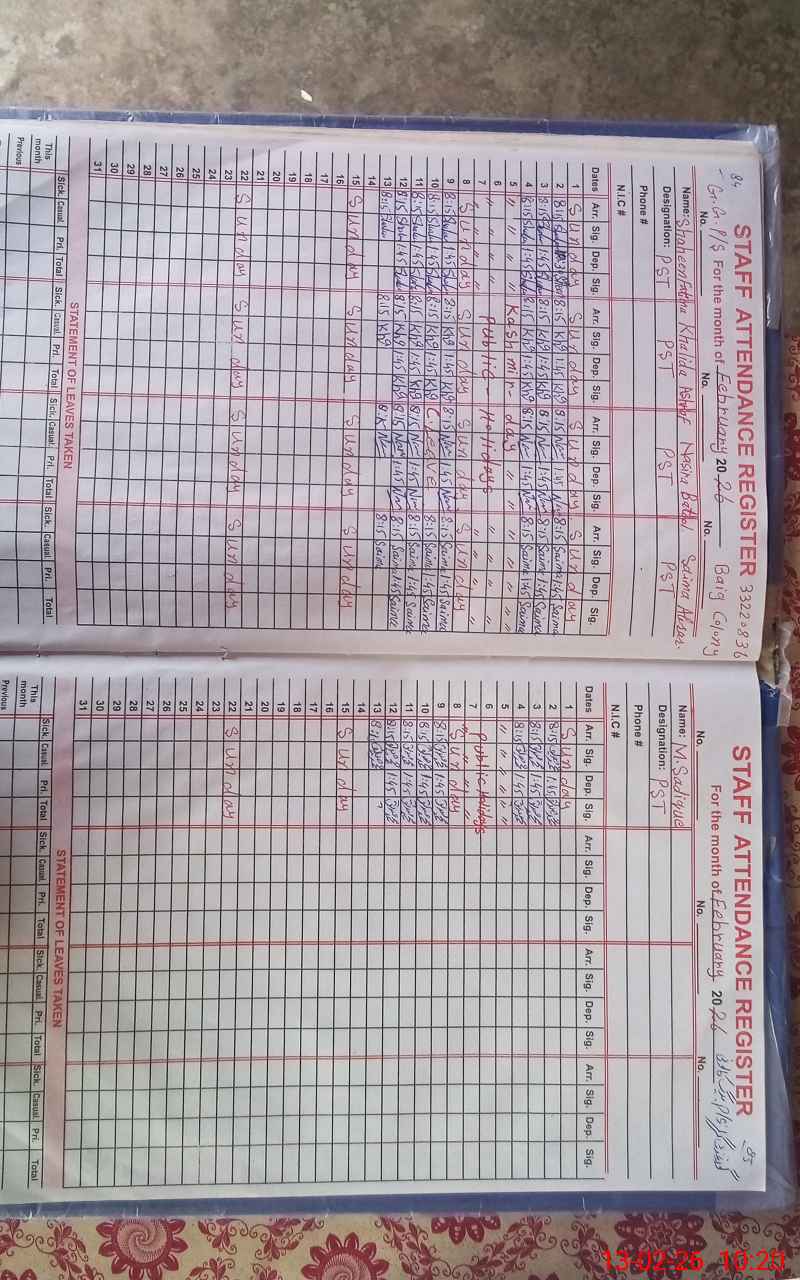 84
STAFF ATTENDANCE REGISTER 33220836
G.G. P/S For the month of February 2026 Baig Colony
No. No. No.
Name: Shaheen Fatima Khalida Ashraf Nasira Batool Saima Absar.
Designation: PST PST PST PST
Phone #
N.I.C #
Dates Arr. Sig. Dep. Sig. Arr. Sig. Dep. Sig. Arr. Sig. Dep. Sig. Arr. Sig. Dep. Sig.
1 Sunday Sunday Sunday Sunday
2 8:15 8:15 Khg 1:45 Khg 8:15 1:45 8:15 Saima 1:45 Saima
3 8:15 1:45 8:15 Khg 1:45 Khg 8:15 1:45 8:15 Saima 1:45 Saima
4 8:15 1:45 8:15 Khg 1:45 Khg 8:15 1:45 8:15 Saima 1:45 Saima
5 " " " " Kashmir- day " " " " "
6 " " " " Public- Holidays " " " "
7 " " " " " " " "
8 Sunday Sunday Sunday Sunday
9 8:15 1:45 8:15 Khg 1:45 Khg 8:15 1:45 8:15 Saima 1:45 Saima
10 8:15 1:45 8:15 Khg 1:45 Khg C Leave 8:15 Saima 1:45 Saima
11 8:15 1:45 8:15 Khg 1:45 Khg 8:15 1:45 8:15 Saima 1:45 Saima
12 8:15 1:45 8:15 Khg 1:45 Khg 8:15 1:45 8:15 Saima 1:45 Saima
13 8:15 8:15 Khg 8:15 8:15 Saima
14
15 Sunday Sunday Sunday Sunday
16
17
18
19
20
21
22 Sunday Sunday Sunday Sunday
23
24
25
26
27
28
29
30
31
STATEMENT OF LEAVES TAKEN
Sick. Casual. Pri. Total Sick. Casual. Pri. Total Sick. Casual. Pri. Total Sick. Casual. Pri. Total
This month
Previous
85
STAFF ATTENDANCE REGISTER
For the month of February 2026
No. No. No.
Name: M. Sadique
Designation: PST
Phone #
N.I.C #
Dates Arr. Sig. Dep. Sig. Arr. Sig. Dep. Sig. Arr. Sig. Dep. Sig. Arr. Sig. Dep. Sig.
1 Sunday
2 8:15 1:45
3 8:15 1:45
4 8:15 1:45
5 " " " "
6 Public Holidays
7 " " " "
8 Sunday
9 8:15 1:45
10 8:15 1:45
11 8:15 1:45
12 8:15 1:45
13 8:15
14
15 Sunday
16
17
18
19
20
21
22 Sunday
23
24
25
26
27
28
29
30
31
STATEMENT OF LEAVES TAKEN
Sick. Casual. Pri. Total Sick. Casual. Pri. Total Sick. Casual. Pri. Total Sick. Casual. Pri. Total
This month
Previous
13-02-26 10:20